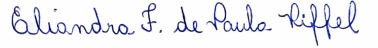 Eliandra F. de Paula Riffel